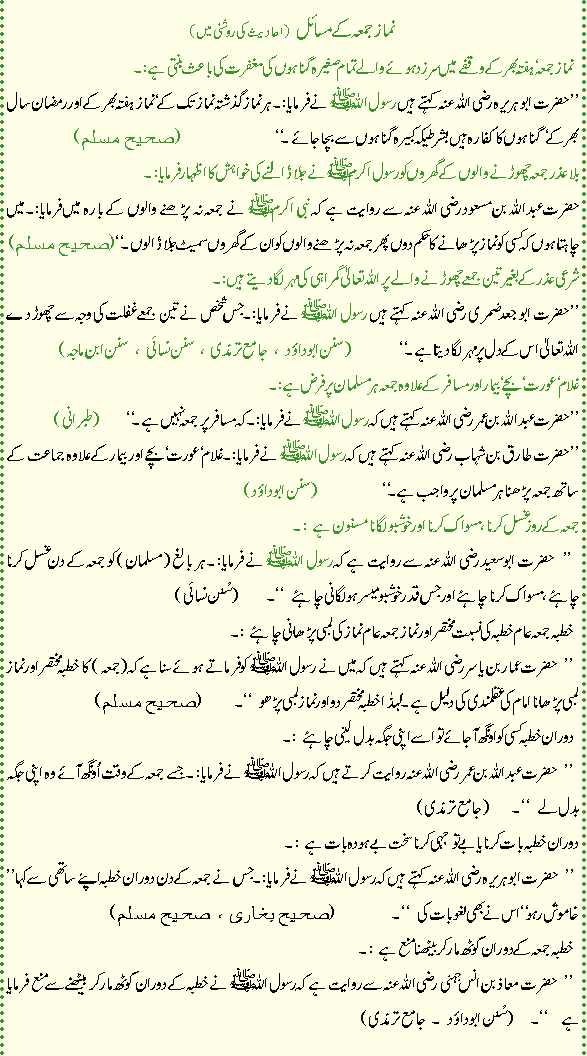 نماز جمعہ کے مسائل (احادیث کی روشنی میں)
نماز جمعہ ‘ ہفتہ بھر کے وقفے میں سرزد ہوئے والے تمام صغیرہ گناہوں کی مغفرت کی باعث بنتی ہے:۔
’’حضرت ابو ہریرہ رضی اللہ عنہ کہتے ہیں رسول اللہ ﷺ نے فرمایا:۔ ہر نماز گذشتہ نماز تک کے‘ نماز ہفتہ بھر کے اور رمضان سال
بھر کے‘ گناہوں کا کفارہ ہیں بشرطیکہ کبیرہ گناہوں سے بچا جائے ۔‘‘ (صحیح مسلم)
بلا عذر جمعہ چھوڑنے والوں کے گھروں کو رسول اکرم ﷺ نے جلا ڈالنے کی خواہش کا اظہار فرمایا:۔
حضرت عبداللہ بن مسعود رضی اللہ عنہ سے روایت ہے کہ نبی اکرم ﷺ نے جمعہ نہ پڑھنے والوں کے بارہ میں فرمایا:۔ میں
چاہتا ہوں کہ کسی کو نماز پڑھانے کا حکم دوں پھر جمعہ نہ پڑھنے والوں کو ان کے گھروں سمیت جلا ڈالوں ۔‘‘ (صحیح مسلم)
شرعی عذر کے بغیر تین جمعے چھوڑنے والے پر اللہ تعالیٰ گمراہی کی مہر لگا دیتے ہیں:۔
’’حضرت ابو جعد ضمری رضی اللہ عنہ کہتے ہیں رسول اللہ ﷺ نے فرمایا:۔ جس شخص نے تین جمعے غفلت کی وجہ سے چھوڑ دے
اللہ تعالیٰ اس کے دل پر مہر لگا دیتا ہے ۔‘‘ (سنن ابو داؤد ، جامع ترمذی ، سنن نسائی ، سنن ابن ماجہ)
غلام‘ عورت‘ بچے‘ بیمار اور مسافر کے علاوہ جمعہ ہر مسلمان پر فرض ہے:۔
’’حضرت عبداللہ بن عمر رضی اللہ عنہ کہتے ہیں کہ رسول اللہ ﷺ نے فرمایا:۔ کہ مسافر پر جمعہ نہیں ہے ۔‘‘ (طبرانی)
’’حضرت طارق بن شہاب رضی اللہ عنہ کہتے ہیں کہ رسول اللہ ﷺ نے فرمایا:۔ غلام‘ عورت‘ بچے اور بیمار کے علاوہ جماعت کے
ساتھ جمعہ پڑھنا ہر مسلمان پر واجب ہے ۔‘‘ (سنن ابو داؤد)
جمعہ کے روز غسل کرنا ، مسواک کرنا اور خوشبو لگانا مسنون ہے :۔
’’ حضرت ابو سعید رضی اللہ عنہ سے روایت ہے کہ رسول اللہ ﷺ نے فرمایا:۔ ہر بالغ (مسلمان) کو جمعہ کے دن غسل کرنا
چاہئے ، مسواک کرنا چاہئے اور جس قدر خوشبو میسر ہو لگانی چاہئے ‘‘۔ (سُنن نسائی)
خطبہ جمعہ عام خطبہ کی نسبت مختصر اور نماز جمعہ عام نماز کی لمبی پڑھانی چاہئے :۔
’’ حضرت عمار بن یاسر رضی اللہ عنہ کہتے ہیں کہ میں نے رسول اللہ ﷺ کو فرماتے ہوئے سنا ہے کہ (جمعہ) کا خطبہ مختصر اور نماز
لمبی پڑھانا امام کی عقلمندی کی دلیل ہے ۔ لہٰذا خطبہ مختصر دو اور نماز لمبی پڑھو ‘‘۔ (صحیح مسلم)
دوران خطبہ کسی کو اونگھ آ جائے تو اسے اپنی جگہ بدل لینی چاہئے :۔
’’ حضرت عبداللہ بن عمر رضی اللہ عنہ روایت کرتے ہیں کہ رسول اللہ ﷺ نے فرمایا:۔ جسے جمعہ کے وقت اُونگھ آئے وہ اپنی جگہ
بدل لے ‘‘۔ (جامع ترمذی)
دوران خطبہ بات کرنا یا بے تو جہی کرنا سخت بے ہودہ بات ہے :۔
’’ حضرت ابو ہریرہ رضی اللہ عنہ کہتے ہیں کہ رسول اللہ ﷺ نے فرمایا:۔ جس نے جمعہ کے دن دوران خطبہ اپنے ساتھی سے کہا’’
خاموش رہو‘‘ اس نے بھی لغو بات کی ‘‘۔ (صحیح بخاری ، صحیح مسلم)
خطبہ جمعہ کے دوران گوٹھ مار کر بیٹھنا منع ہے :۔
’’ حضرت معاذ بن انس جہنی رضی اللہ عنہ سے روایت ہے کہ رسول اللہ ﷺ نے خطبہ کے دوران گوٹھ مار کر بیٹھنے سے منع فرمایا
ہے ‘‘۔ (سُنن ابو داؤد ۔ جامع ترمذی)